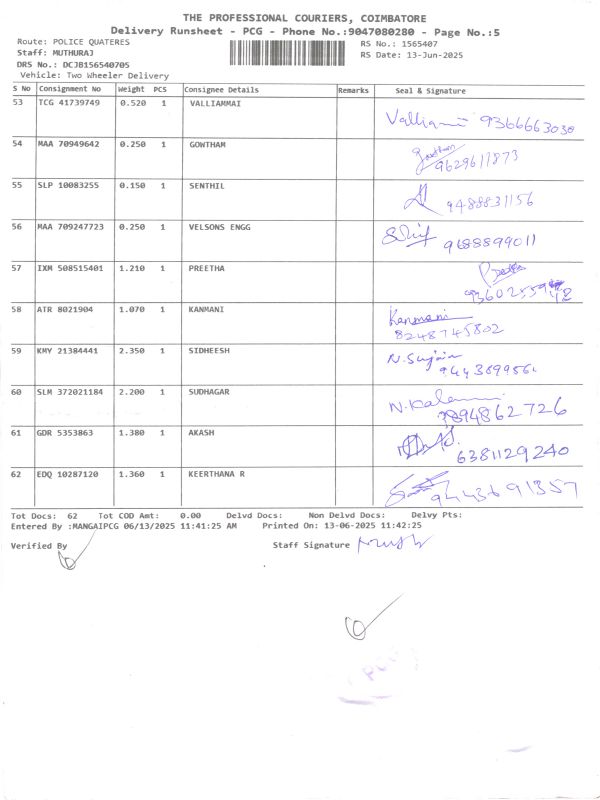 THE PROFESSIONAL COURIERS, COIMBATORE
Delivery Runsheet - PCG - Phone No.:9047080280 - Page No.:5
Route: POLICE QUATERES RS No.: 1565407
Staff: MUTHURAJ RS Date: 13-Jun-2025
DRS No.: DCJB156540705
Vehicle: Two Wheeler Delivery
S No Consignment No Weight PCS Consignee Details Remarks Seal & Signature
53 TCG 41739749 0.520 1 VALLIAMMAI 9366663030
54 MAA 70949642 0.250 1 GOWTHAM Gowtham 9629611873
55 SLP 10083255 0.150 1 SENTHIL 9488831156
56 MAA 709247723 0.250 1 VELSONS ENGG 9688899011
57 IXM 508515401 1.210 1 PREETHA
58 ATR 8021904 1.070 1 KANMANI Kanmani 8248745802
59 KMY 21384441 2.350 1 SIDHEESH N. Sujain
60 SLM 372021184 2.200 1 SUDHAGAR
61 GDR 5353863 1.380 1 AKASH 6381129240
62 EDQ 10287120 1.360 1 KEERTHANA R 9443691357
Tot Docs: 62 Tot COD Amt: 0.00 Delvd Docs: Non Delvd Docs: Delvy Pts:
Entered By :MANGAIPCG 06/13/2025 11:41:25 AM Printed On: 13-06-2025 11:42:25
Verified By Staff Signature